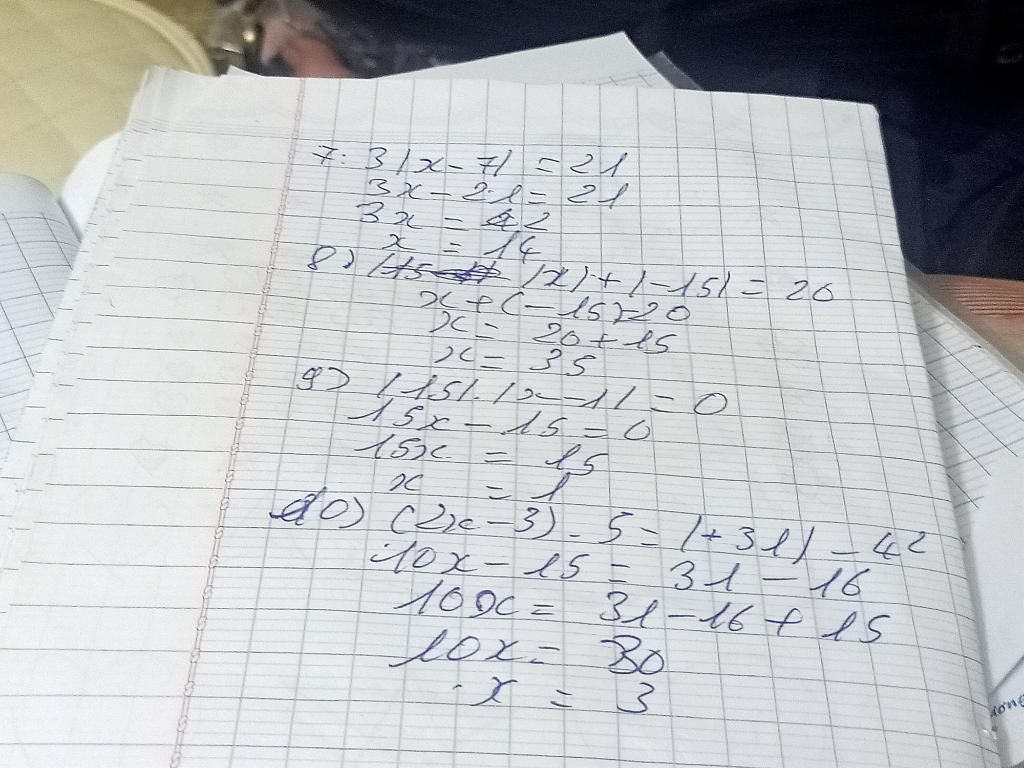 7: 3|x-7| = 21
3x - 21 = 21
3x = 42
x = 14
8) |x| + |-15| = 20
x + (-15) = 20
x = 20 + 15
x = 35
9) |-15|.|x-1| = 0
15x - 15 = 0
15x = 15
x = 1
10) (2x-3) . 5 = |+31| - 4²
10x - 15 = 31 - 16
10x = 31 - 16 + 15
10x = 30
x = 3